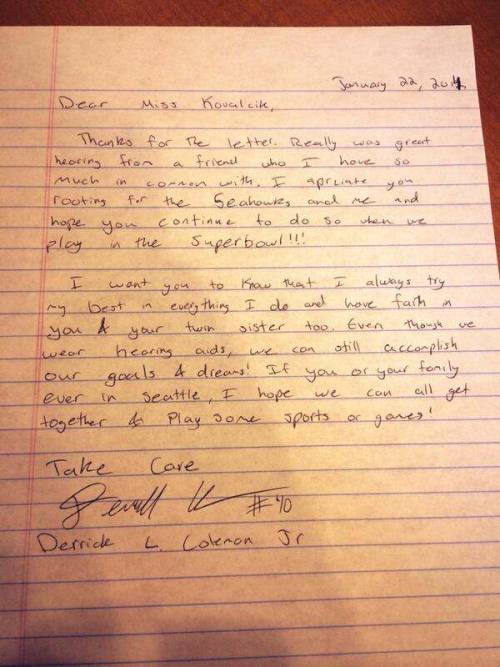 January 22, 2014
Dear Miss Kovalcik,
Thanks for the letter. Really was great
hearing from a friend who I have so
much in common with. I apreciate you
rooting for the Seahawks and me and
hope you continue to do so when we
play in the Superbowl!!!
I want you to know that I always try
my best in everything I do and have faith in
you & your twin sister too. Even though we
wear hearing aids, we can still accomplish
our goals & dreams! If you or your family
ever in Seattle, I hope we can all get
together & Play some sports or games!
Take Care
#40
Derrick L. Coleman Jr